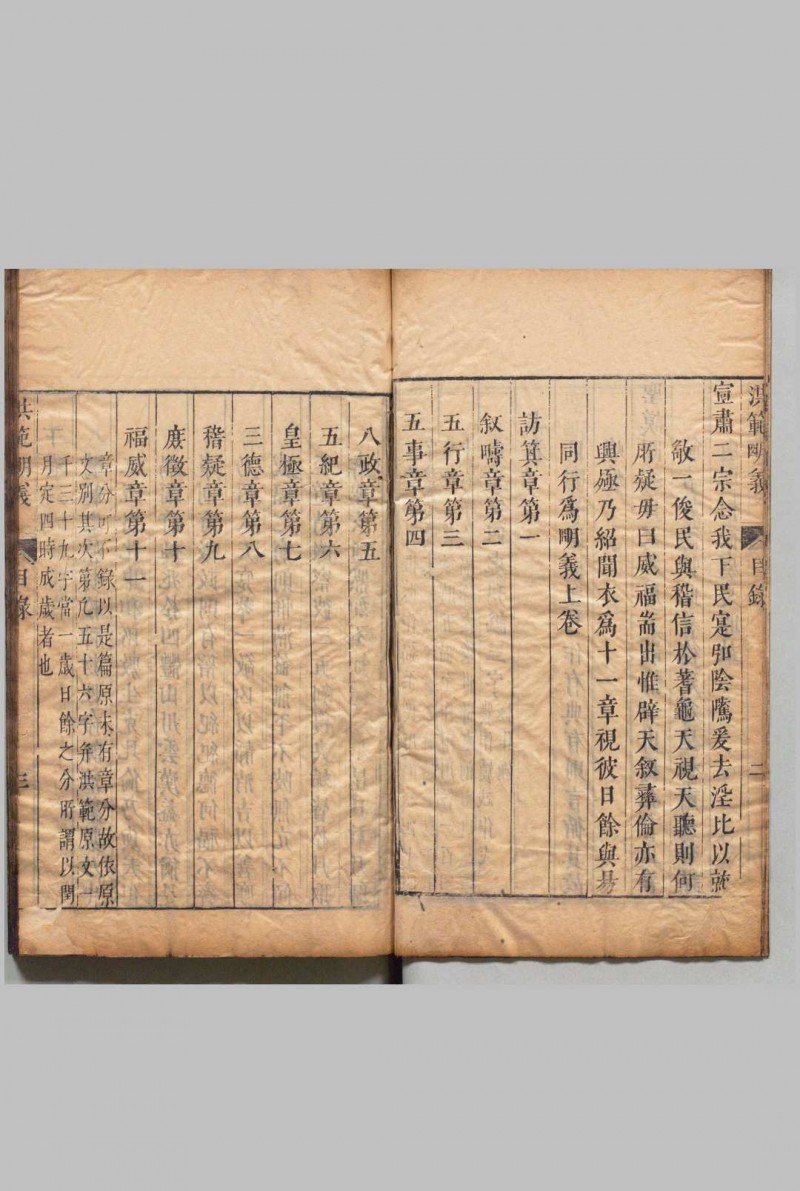 洪範明義 目錄 二
宣肅二宗念我下民寔卹陰隲爰去淫比以就
敬一俊民與稽信於蓍龜天視天聽則何
所疑毋曰威福耑出惟辟天叙彞倫亦有
興極乃紹聞衣爲十一章視彼日餘與昜
同行爲明義上卷
訪箕章第一
叙疇章第二
五行章第三
五事章第四
八政章第五
五紀章第六
皇極章第七
三德章第八
稽疑章第九
庶徵章第十
福威章第十一
章分可不錄以是篇原未有章分故依原
文別其次第凢五十六字并洪範原文一
千三十九字當一歲日餘之分所謂以閏
月定四時成歲者也
洪範明義 目錄 三